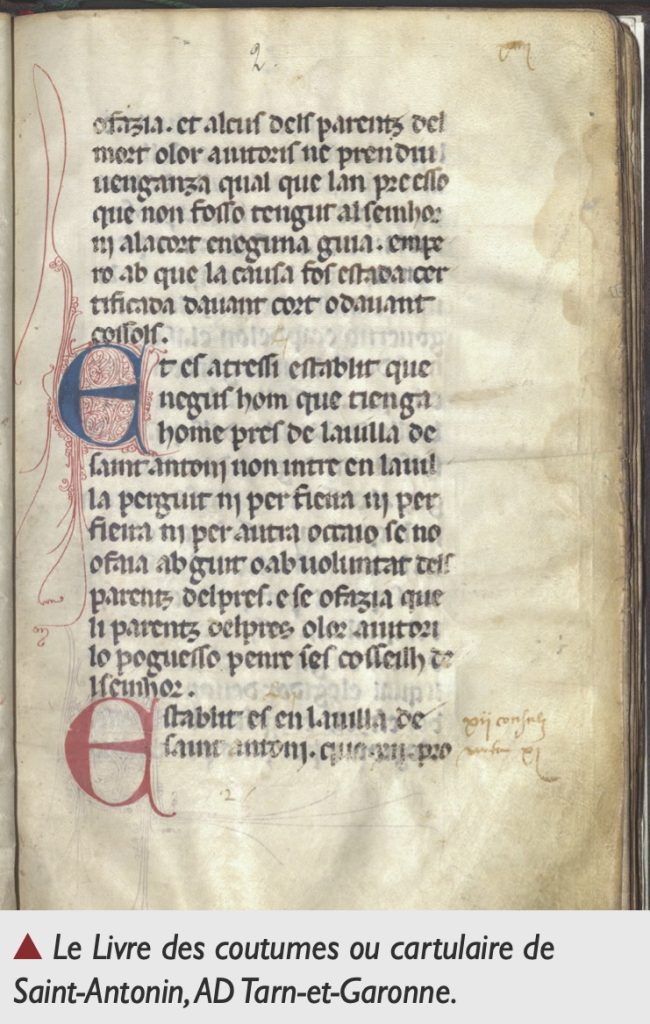 2
ofazia. et alcus dels parentz del
mort olor aiutoris ne prendiu
uenganza qual que lan preesso
que non fosso tengut al senhor
ni ala cort eneguna guia. empe
ro ab que la causa fos estada cer
tificada dauant cort o dauant
cossols.
Et es atressi establit que
negus hom que tienga
home pres de la uilla de
saint antoni non intre en lauil
la per guit ni per fieira ni per
fieira ni per autra occaio se no
o faia ab guit o ab uoluntat dels
parentz del pres. e se o fazia que
li parentz del pres olor aiutori
lo poguesso penre ses cosseilh de
l senhor.
Establit es en la uilla de
saint antoni. que .xii. pro
xij consulz
2
▲ Le Livre des coutumes ou cartulaire de
Saint-Antonin, AD Tarn-et-Garonne.